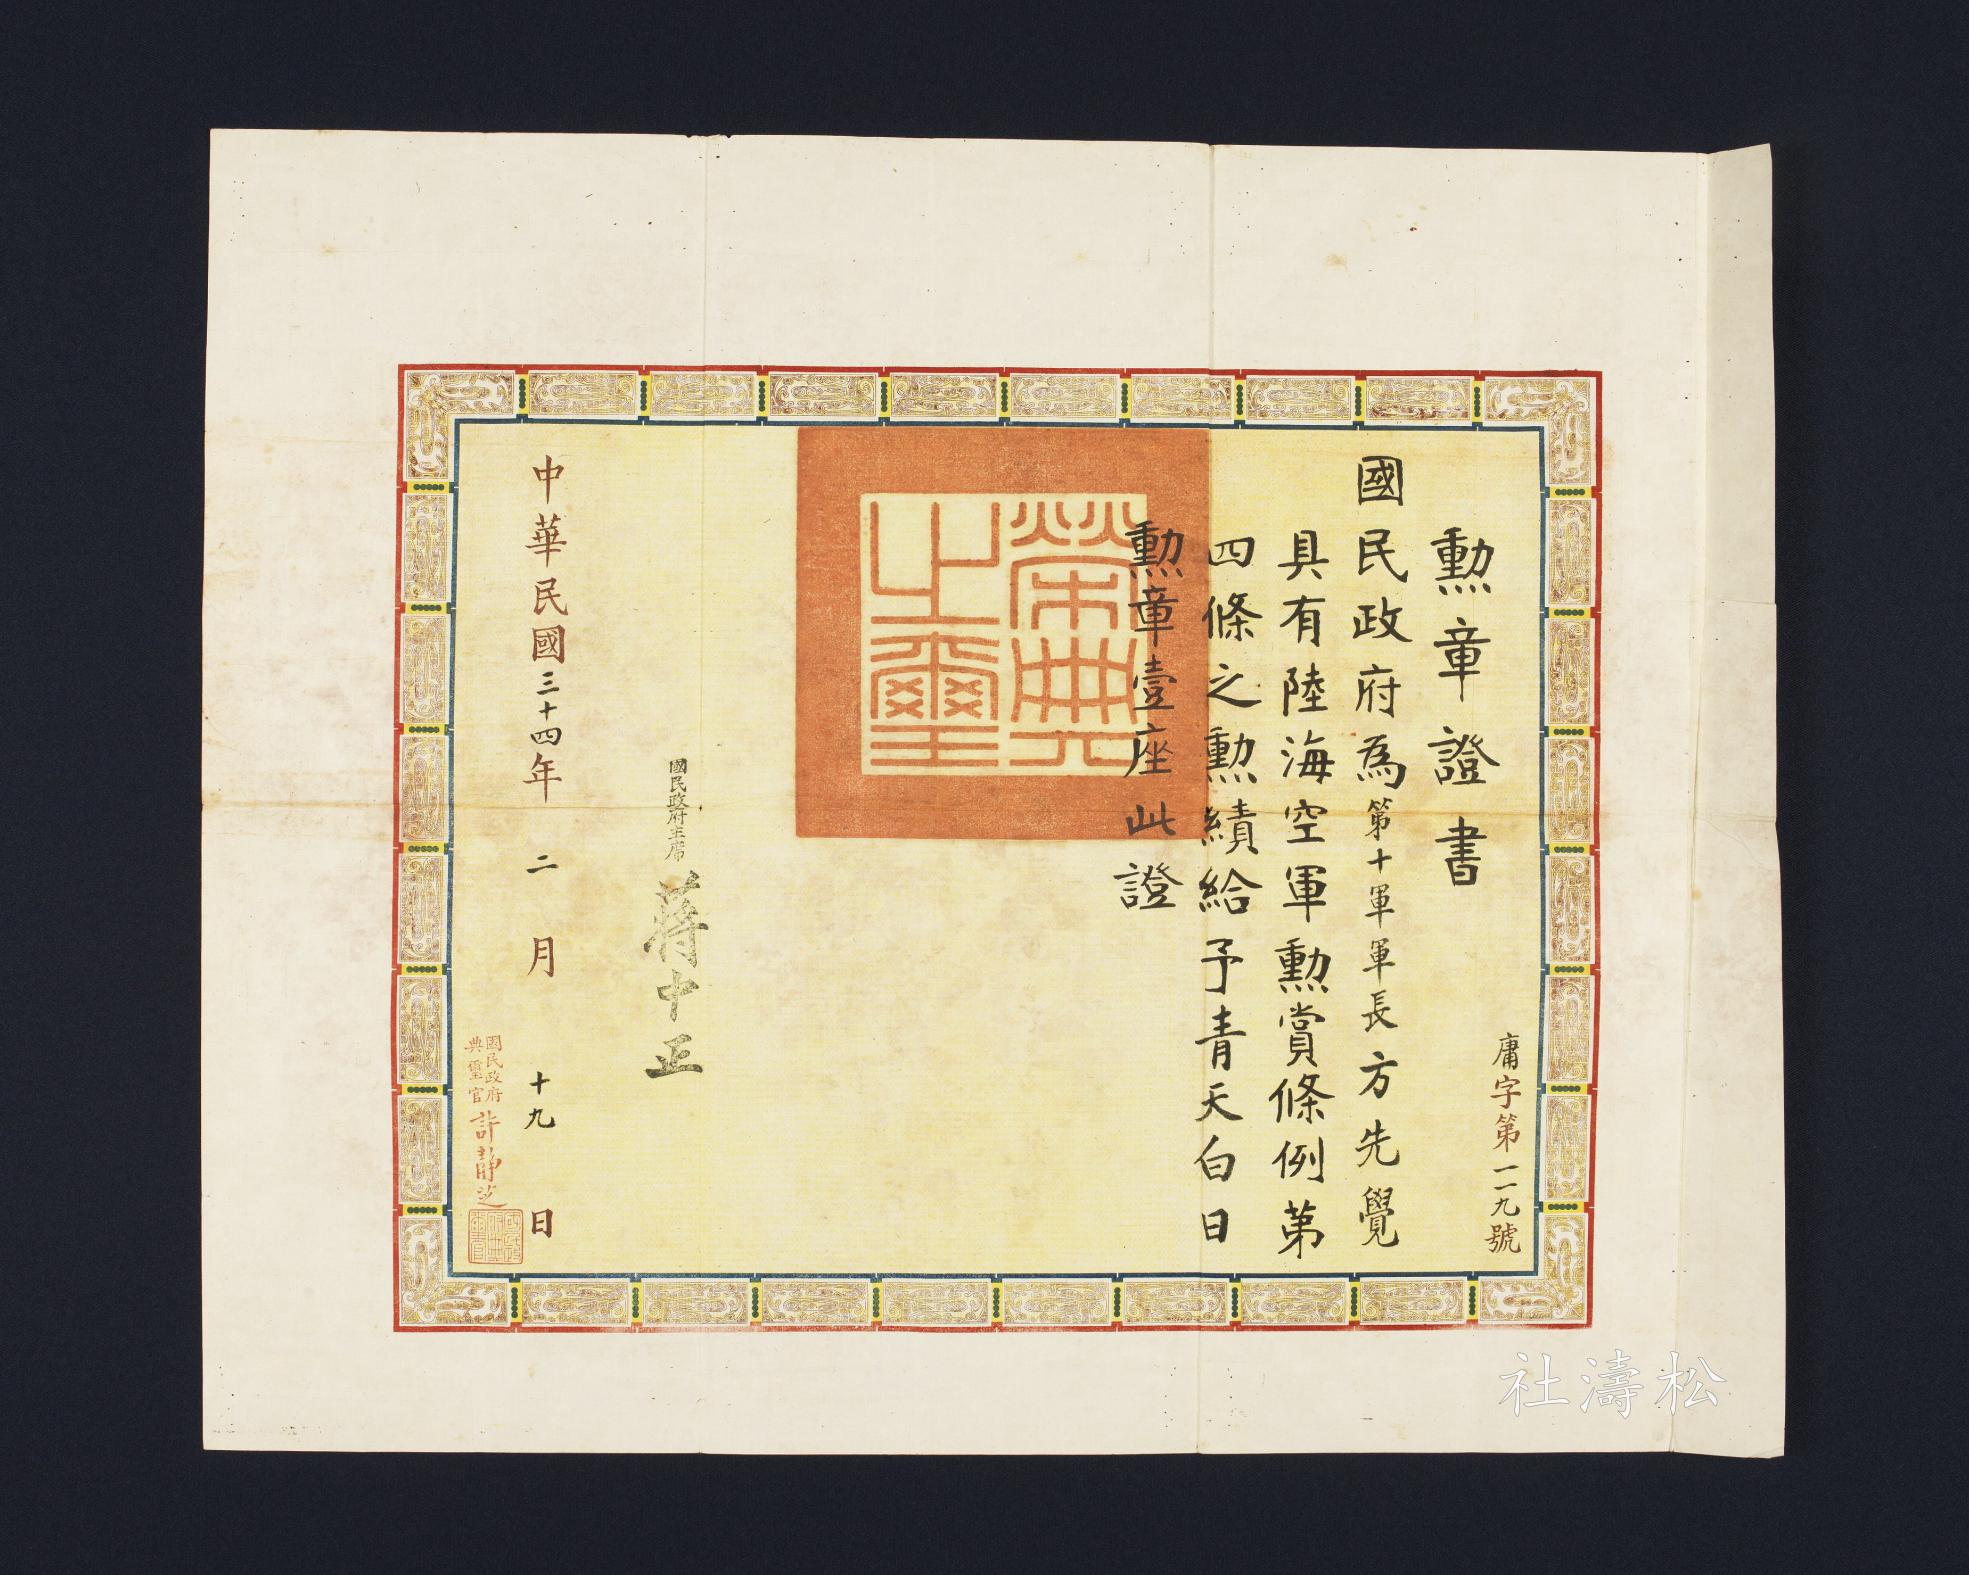 庸字第一一九號
勲章證書
國民政府為第十軍軍長方先覺
具有陸海空軍勲賞條例第
四條之勲績給予青天白日
勲章壹座此證
榮典之璽
國民政府主席 蔣中正
中華民國三十四年二月十九日
國民政府
典璽官 許靜芝
國民政府典璽官
松濤社